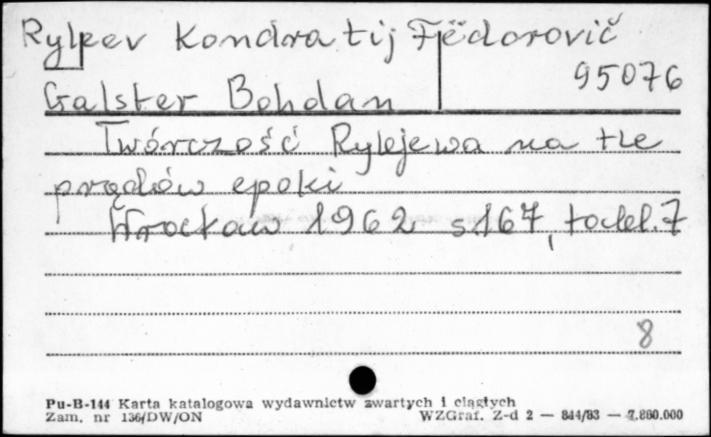 Ryleev Kondratij Fëdorovič
95076
Galster Bohdan
Twórczość Rylejewa na tle
prądów epoki
Wrocław 1962 s 167, tabl. 7
8
Pu-B-144 Karta katalogowa wydawnictw zwartych i ciągłych
Zam. nr 136/DW/ON WZGraf. Z-d 2 — 844/83 — 7.800.000